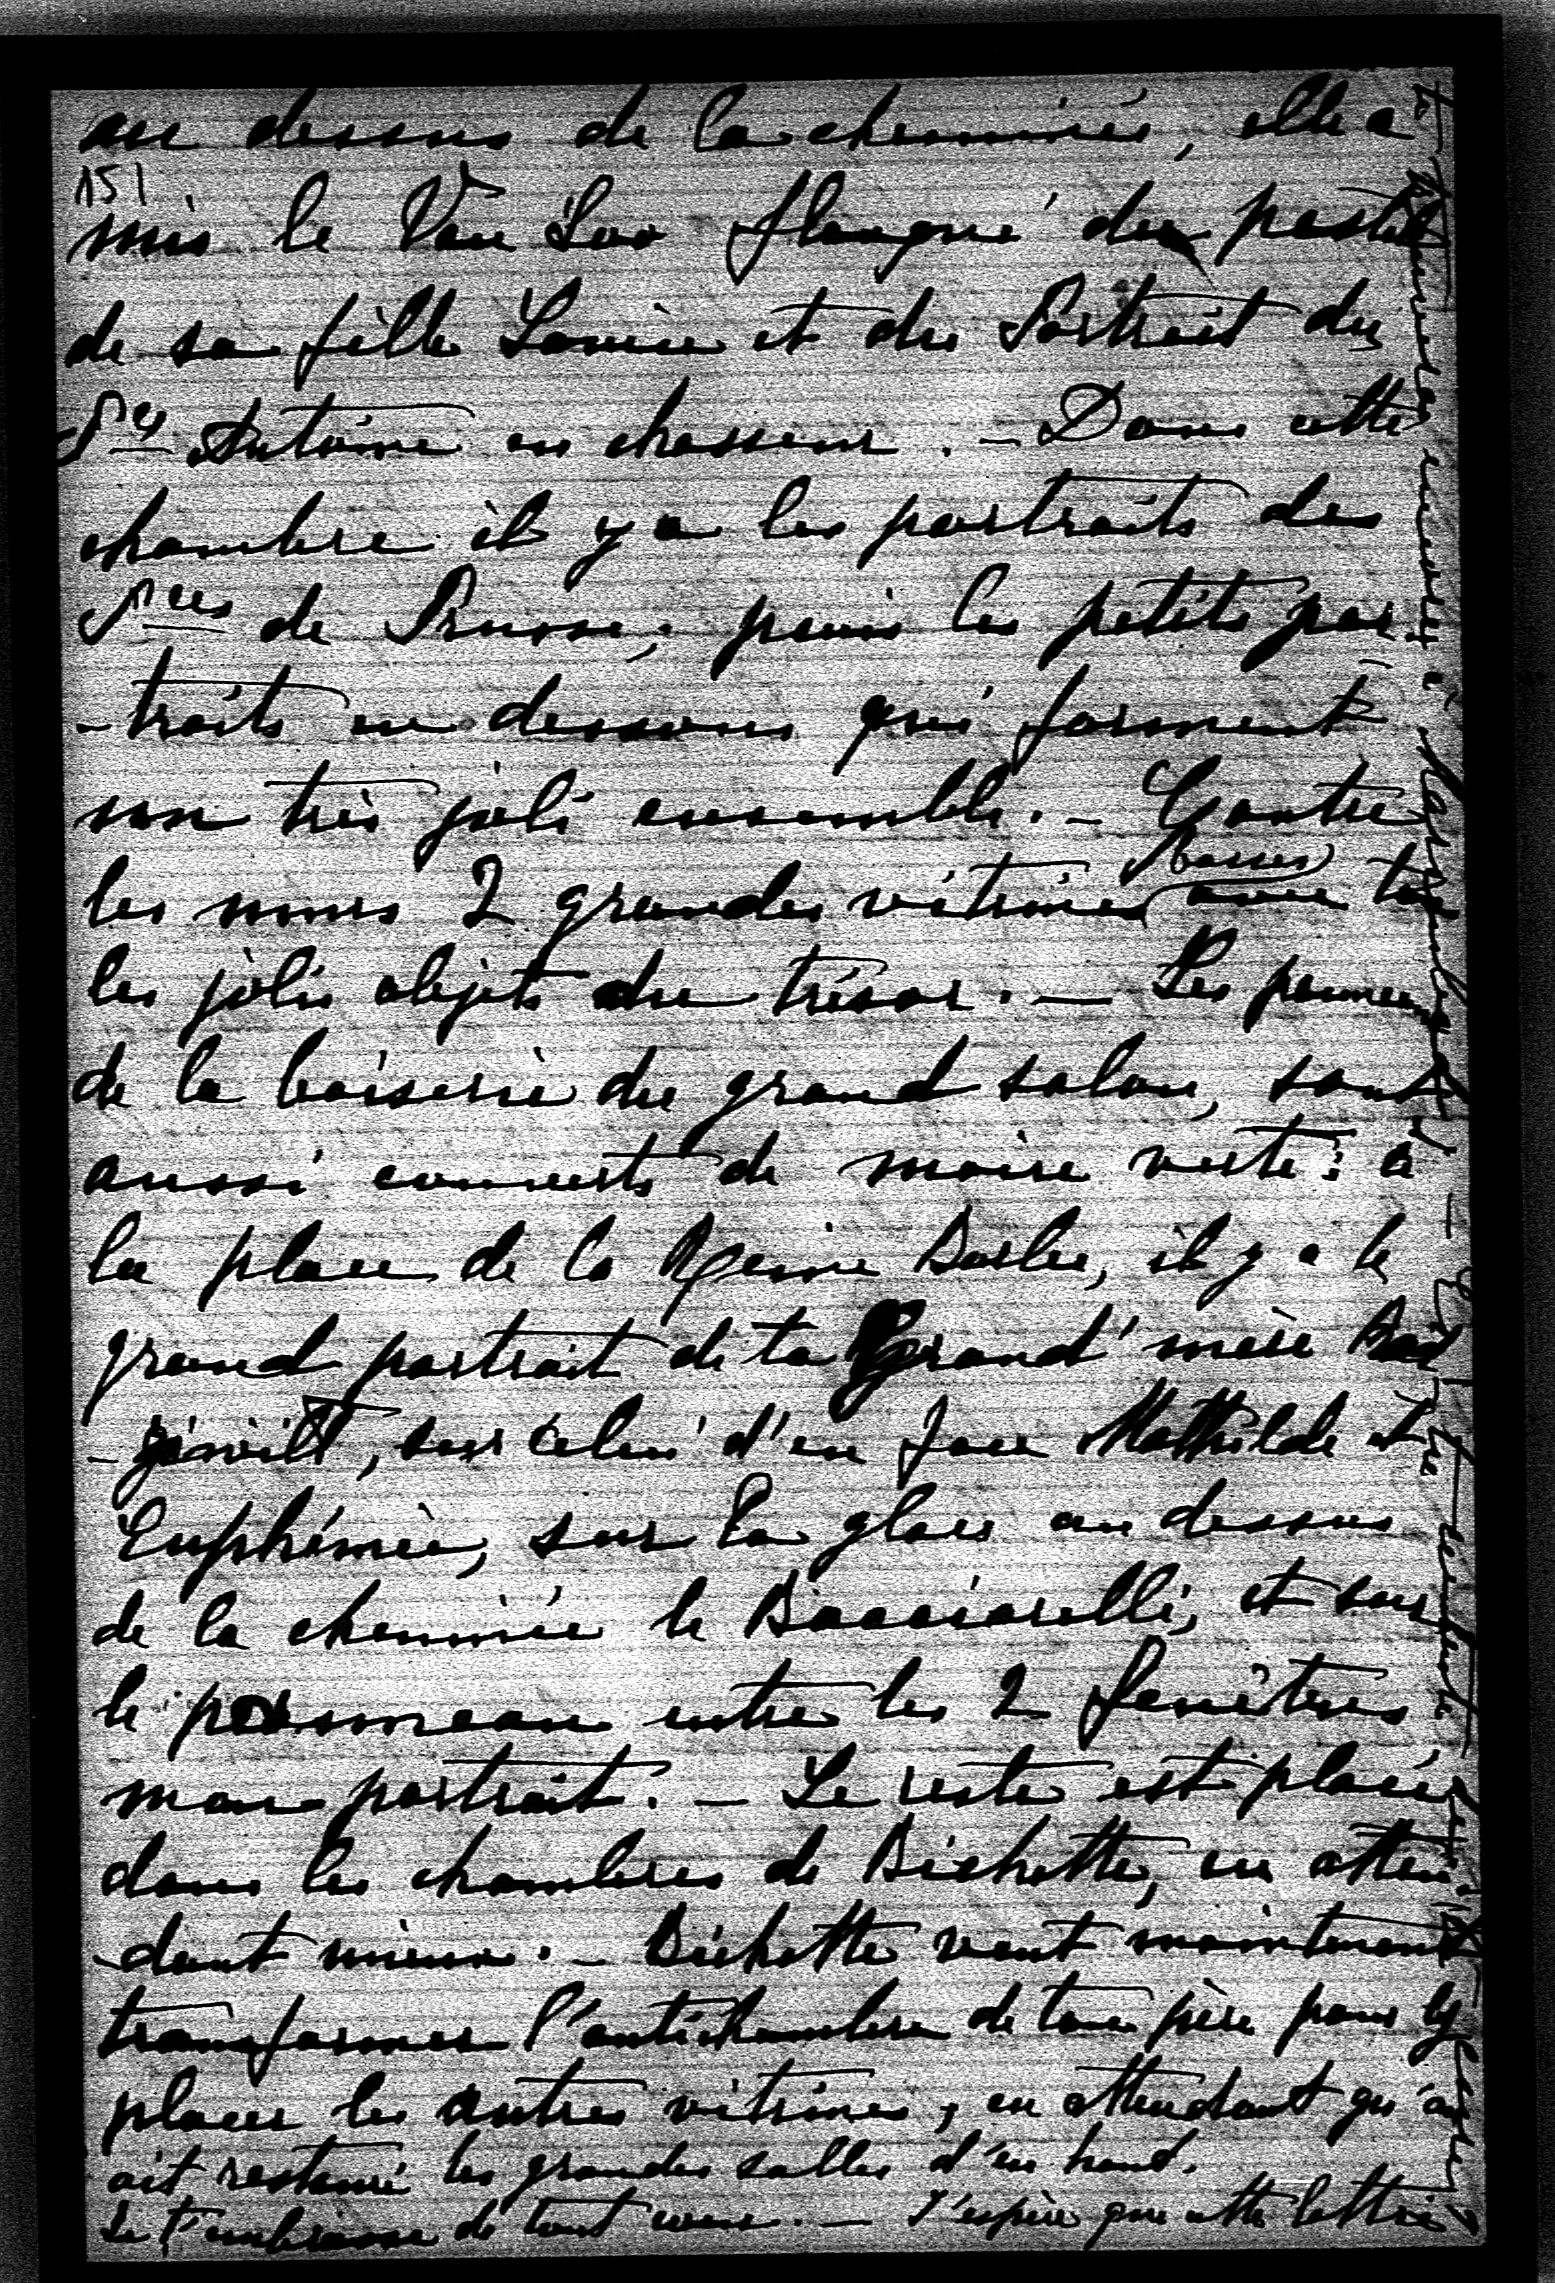 au dessus de la cheminée, elle a
151
mis le Van Loo flanqué du pastel
de sa fille Louise et du Portrait du
Pce Antoine en chasseur. — Dans cette
chambre il y a les portraits des
Pces de Prusse, puis les petits por
-traits en dessous qui forment
un très joli ensemble. — Contre
les murs 2 grandes vitrines basses avec tous
les jolis objets du trésor. — Les panneaux
de la boiserie du grand salon, sont
aussi couverts de moire verte: à
la place de la Reine Barbe, il y a le
grand portrait de ta Grand'mère Rad
-ziwill, sur celui d'en face Mathilde et
Euphémie, sur la glace au dessus
de la cheminée le Bacciarelli, et sur
le panneau entre les 2 fenêtres
mon portrait. — Le reste est placé
dans les chambres de Bichette, en atten
-dant mieux. — Bichette veut maintenant
transformer l'antichambre de ton père pour y
placer les autres vitrines, en attendant qu'on
ait restauré les grandes salles d'en haut.
Je t'embrasse de tout cœur. — J'espère que cette lettre
te trouvera encore à